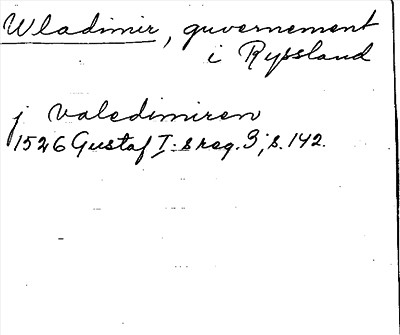 Wladimir, guvernement
i Ryssland
j valedimiren
1526 Gustaf I:s reg. 3, s. 142.